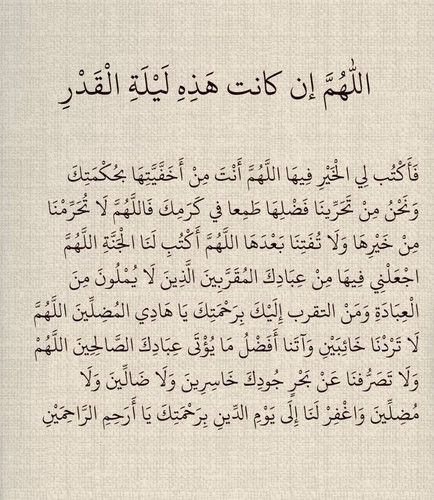 اللّٰهُمَّ إن كانت هَذِهِ لَيْلَةِ الْقَدْرِ
فَأَكْتُب لِي الْخَيْرِ فِيهَا اللَّهُمَّ أَنْتَ مِنْ أَخَفَّيَّتِهَا بِحُكْمَتِكَ
وَنَحْنُ مِنْ تَحَرِّينَا فَضْلِهَا طَمِعا في كَرَمِكَ فَاللَّهُمَّ لَا تُحَرِّمْنَا
مِنْ خَيْرِهَا وَلَا تُفَتِنَا بَعْدَهَا اللَّهُمَّ أَكْتُبِ لَنَا الْجَنَّةِ اللَّهُمَّ
اجَعَلْنِي فِيهَا مِنْ عِبَادِكَ المُقَرَّبَيِنَ الَّذِينَ لَا يُمْلُونَ مِنَ
الْعِبَادَةِ وَمَنْ التقرب إِلَيْكَ بِرَحْمَتِكَ يَا هَادِي المُضِلِّينَ اللَّهُمَّ
لَا تَرْدْنَا خَائِبَيْنِ وَآتَنا أَفْضَلُ مَا يُؤْتَى عِبَادِكَ الصَّالِحَيْنِ اللَّهُمْ
وَلَا تَصَرُّفَنا عَنْ بَحْرٍ جُودِكَ خَاسِرِينَ وَلَا ضَالِّينَ وَلَا
مُضِلِّينَ وَاغْفِرْ لَنَا إِلَى يَوْمِ الدِّينِ بِرَحْمَتِكَ يَا أَرَحِمِ الرَّاحِمَيْنِ